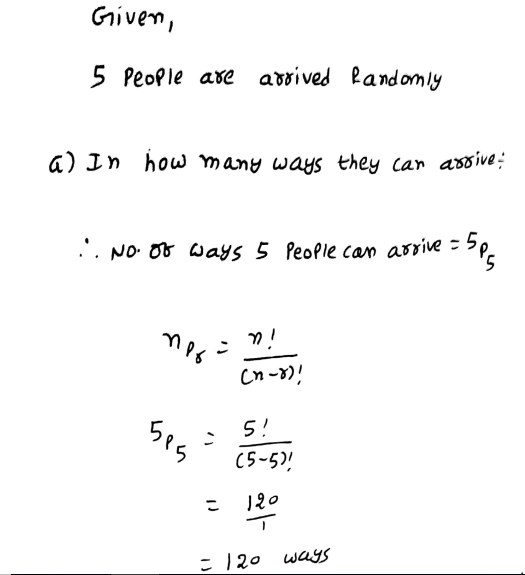 Given,
5 People are arrived Randomly
a) In how many ways they can arrive:
∴ No. of ways 5 People can arrive = 5P5
nPr = n! / (n-r)!
5P5 = 5! / (5-5)!
= 120 / 1
= 120 ways